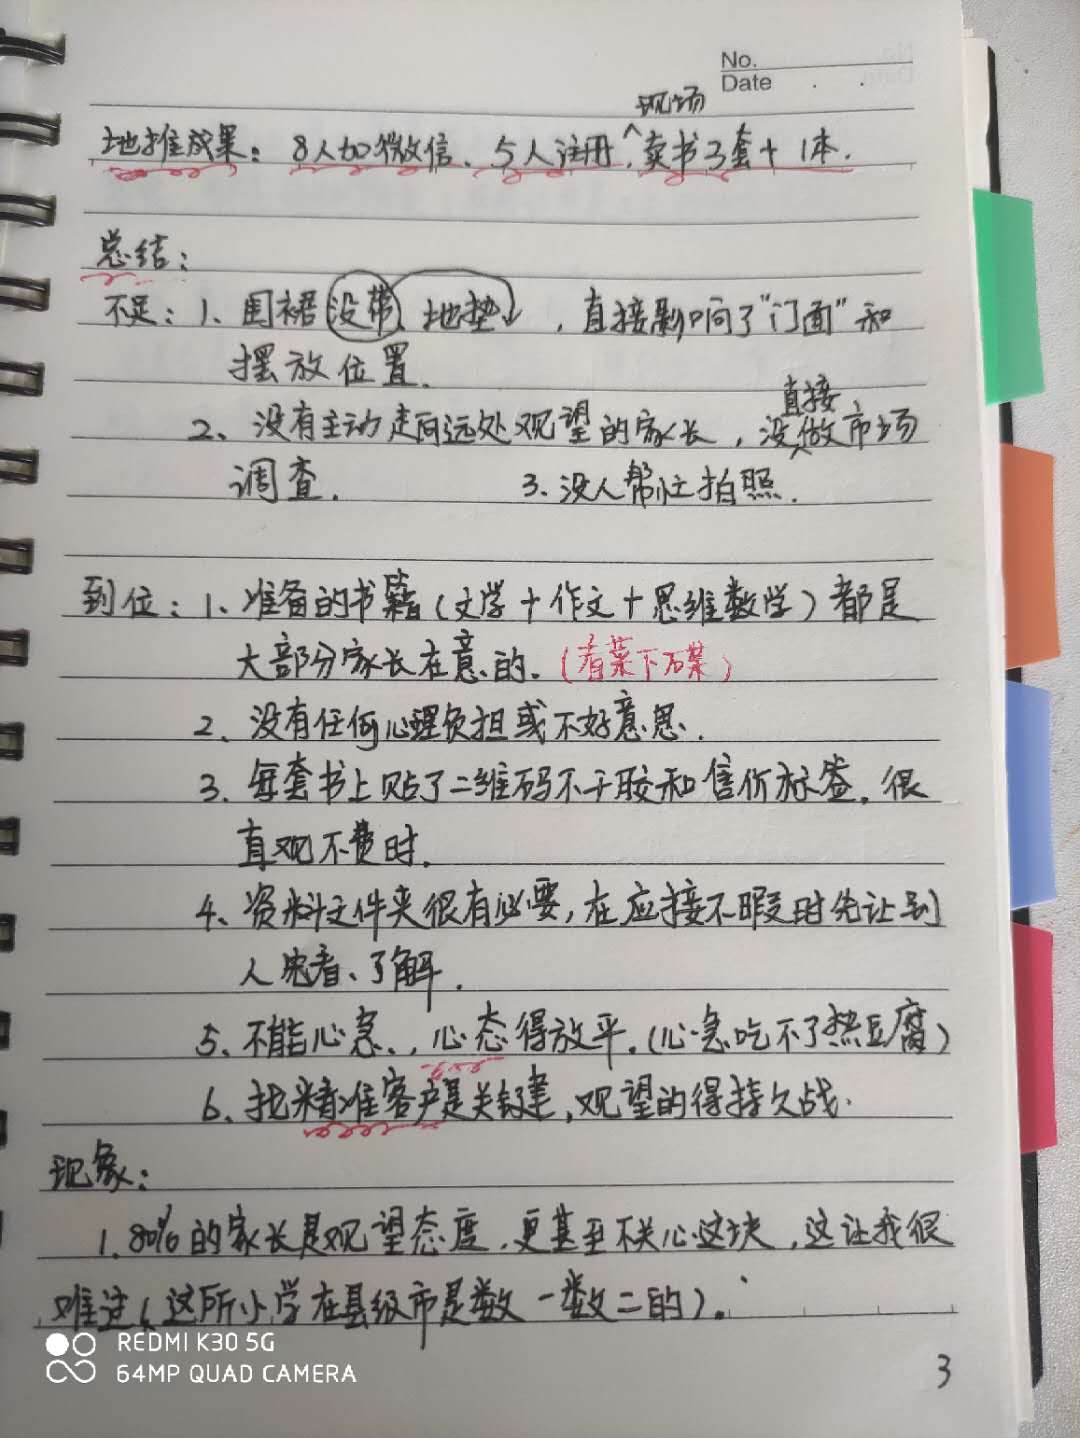 No.
Date
现场
地推成果：8人加微信、5人注册，卖书3套+1本.
总结：
不足：1、围裙没带、地垫，直接影响了"门面"和
摆放位置.
直接
2、没有主动走向远处观望的家长，没做市场
调查. 3.没人帮忙拍照.
到位：1、准备的书籍（文学+作文+思维数学）都是
大部分家长在意的.（看菜下碟）
2、没有任何心理负担或不好意思.
3、每套书上贴了二维码不干胶和售价标签，很
直观不费时.
4、资料文件夹很有必要，在应接不暇时先让别
人先看、了解.
5、不能心急.，心态得放平.（心急吃不了热豆腐）
6、找精准客户是关键，观望的得持久战.
现象：
1.80%的家长是观望态度，更甚至不关心这块，这让我很
难过（这所小学在县级市是数一数二的）.
REDMI K30 5G
64MP QUAD CAMERA
3